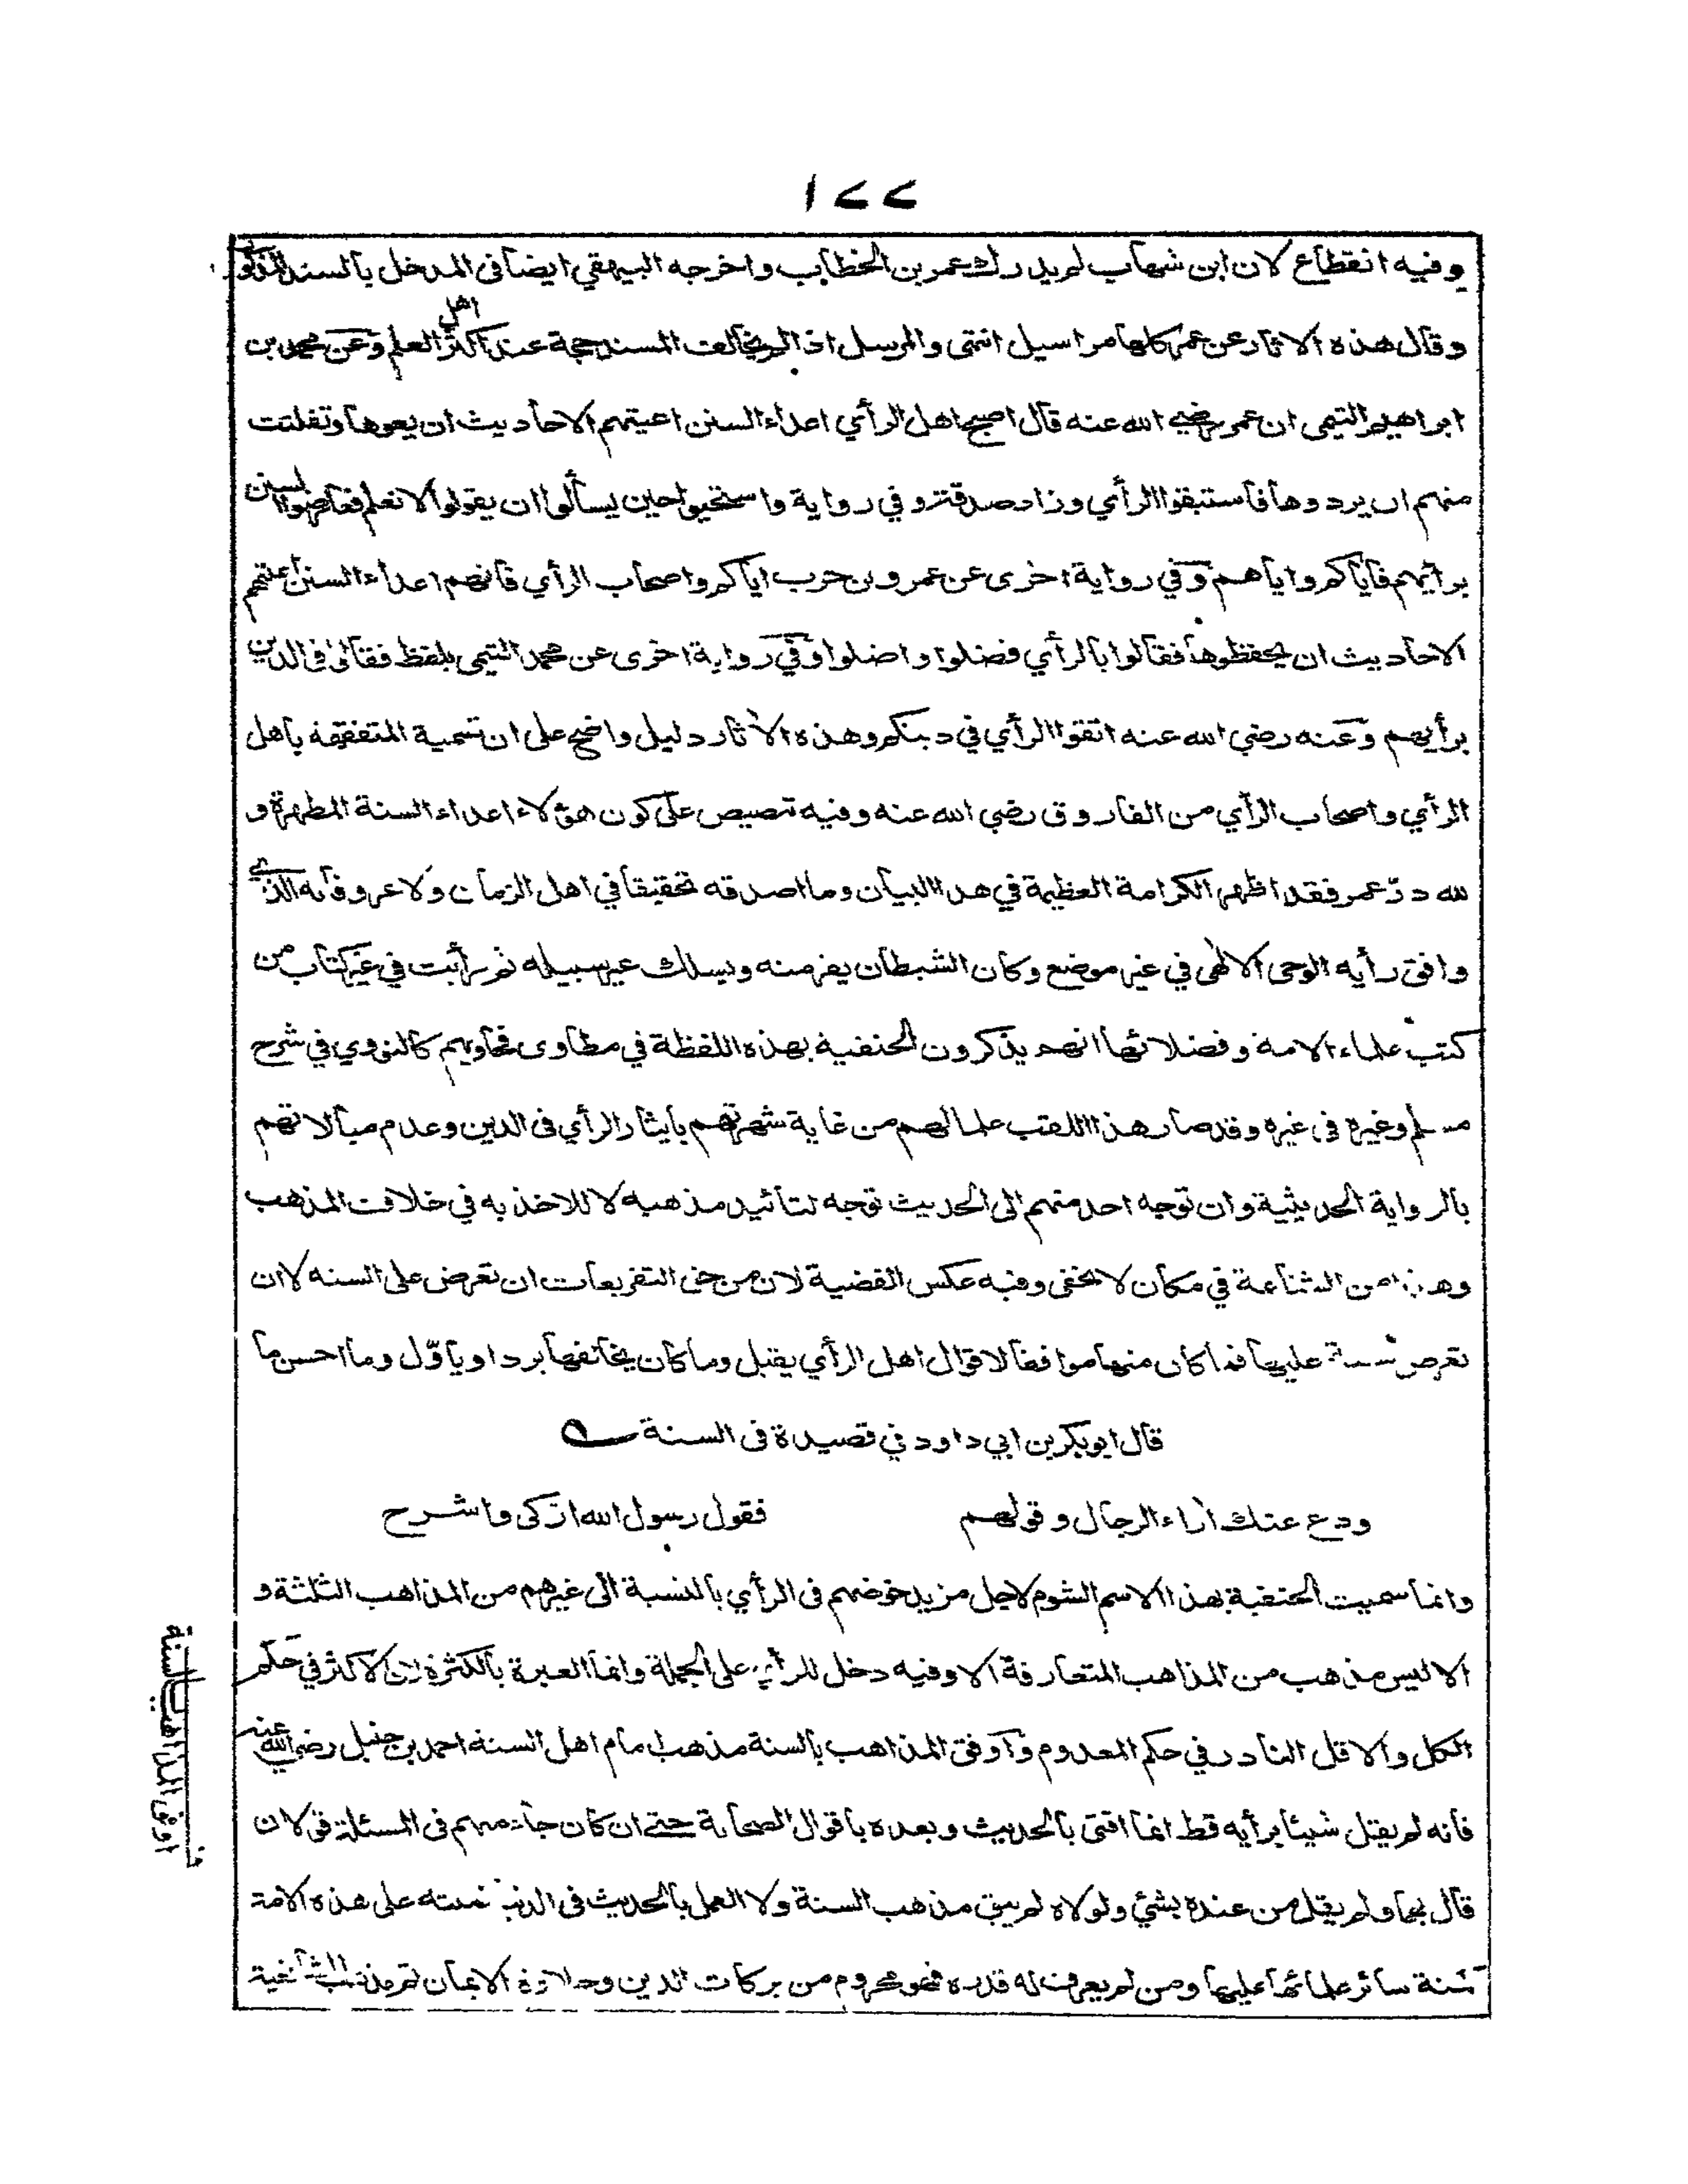 ١٧٧
وفيه انقطاع لان ابن شهاب لم يدرك عمر بن الخطاب واخرجه البيهقي ايضا في المدخل بالسند المذكور
وقال هذه الآثار عن عمر كلها مراسيل انتهى والمرسل اذا لم يخالف المسند حجة عند اكثر اهل العلم وعن محمد بن
ابراهيم التيمي ان عمر رضي الله عنه قال اصبح اهل الرأي اعداء السنن اعيتهم الاحاديث ان يعوها وتفلتت
منهم ان يردوها فاستبقوا الرأي وزاد صدقة وفي رواية واستحيوا حين يسألوا ان يقولوا لا نعلم فعارضوا السنن
برأيهم فاياكم واياهم وفي رواية اخرى عن عمرو بن حرب اياكم واصحاب الرأي فانهم اعداء السنن اعيتهم
الاحاديث ان يحفظوها فقالوا بالرأي فضلوا واضلوا وفي رواية اخرى عن محمد التيمي بلفظ فقالوا في الدين
برأيهم وعنه رضي الله عنه اتقوا الرأي في دينكم وهذه الآثار دليل واضح على ان تسمية المتفقهة باهل
الرأي واصحاب الرأي من الفاروق رضي الله عنه وفيه تصيص على كون هؤلاء اعداء السنة المطهرة و
لله درّ عمر فقد اظهر الكرامة العظيمة في هذا البيان وما اصدقه تحقيقا في اهل الزمان ولا عرو فانه الذي
وافق رأيه الوحى الالهى في غير موضع وكان الشيطان يفر منه ويسلك غير سبيله ثم رأيت في غير كتاب من
كتب علماء الامة وفضلائها انهم يذكرون الحنفية بهذه اللفظة في مطاوى فحاويهم كالنووي في شرح
مسلم وغيره في غيره وقد صار هذا اللقب علما لهم من غاية شهرتهم بايثار الرأي في الدين وعدم مبالاتهم
بالرواية الحديثية وان توجه احد منهم الى الحديث توجه لتائيد مذهبه لا للاخذ به في خلاف المذهب
وهذا من الشناعة في مكان لا يخفى وفيه عكس القضية لان من حق التفريعات ان تعرض على السنة لا ان
تعرض السنة عليها فما كان منها موافقا لاقوال اهل الرأي يقبل وما كان يخالفها يرد او ياوّل وما احسن ما
قال ابو بكر بن ابي داود في قصيدة في السنة
ودع عنك آراء الرجال وقولهم فقول رسول الله ازكى واشرح
وانما سميت الحنفية بهذا الاسم الشوم لاجل مزيد خوضهم في الرأي بالنسبة الى غيرهم من المذاهب الثلثة و
الا ليس مذهب من المذاهب المتعارفة الا وفيه دخل للرأي على الجملة وانما العبرة بالكثرة لان الاكثر في حكم
الكل والاقل النادر في حكم المعدوم واوفق المذاهب بالسنة مذهب امام اهل السنة احمد بن حنبل رضي الله عنه
فانه لم يقل شيئا برأيه قط انما افتى بالحديث وبعده باقوال الصحابة حتى ان كان جاء منهم في المسئلة قولان
قال بهما ولم يقل من عنده بشئ ولولاه لم يبق مذهب السنة ولا العمل بالحديث في الدنيا فمنته على هذه الامة
منة سائر علمائها عليها ومن لم يعرف له قدره فهو محروم من بركات الدين وحلاوة الايمان ثم مذهب الشافعية
اوفق المذاهب بالسنة